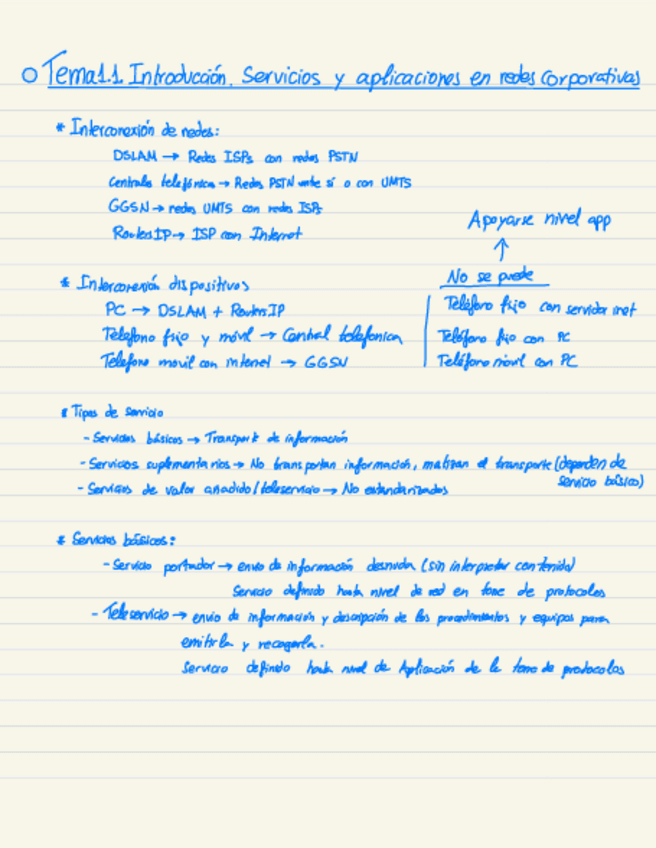 Tema1.1. Introducción. Servicios y aplicaciones en redes Corporativas
* Interconexión de redes:
DSLAM → Redes ISPs con redes PSTN
Centrales telefónica → Redes PSTN entre sí o con UMTS
GGSN → redes UMTS con redes ISPs
Routers IP → ISP con Internet
Apoyarse nivel app
↑
No se puede
Teléfono fijo con servidor inet
Teléfono fijo con PC
Teléfono móvil con PC
* Interconexión dispositivos
PC → DSLAM + Routers IP
Teléfono fijo y móvil → Central telefónica
Teléfono movil con internet → GGSN
* Tipos de servicio
- Servicios básicos → Transporte de información
- Servicios suplementarios → No transportan información, matizan el transporte (dependen de
servicio básico)
- Servicios de valor añadido/teleservicio → No estandarizados
* Servicios básicos:
- Servicio portador → envío de información desnuda (sin interpretar contenido)
Servicio definido hasta nivel de red en torre de protocolos
- Teleservicio → envio de información y descripción de los procedimientos y equipos para
emitirla y recogerla.
Servicio definido hasta nivel de Aplicación de la torre de protocolos